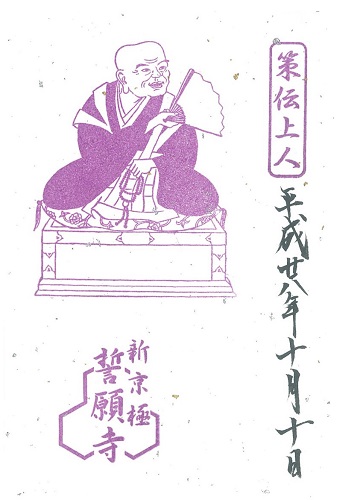 策伝上人
平成廿八年十月十日
新京極
誓願寺